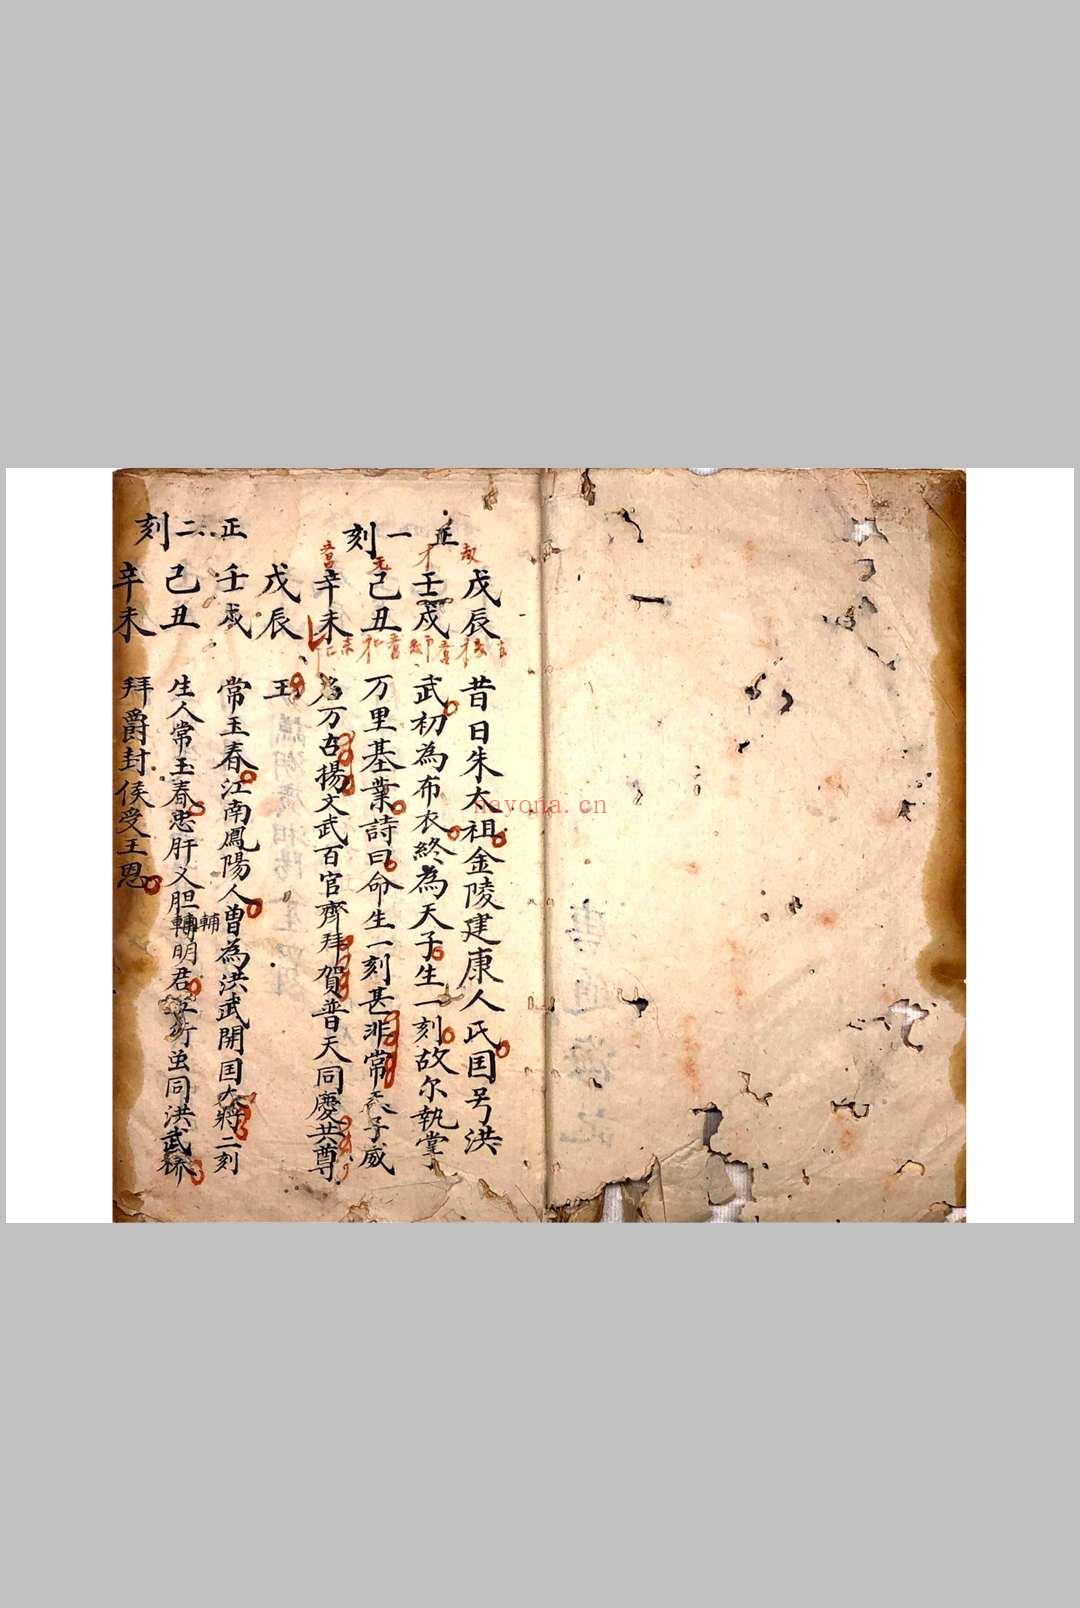 正一刻
戊辰 昔日朱太祖金陵建康人氏囯号洪
壬戌 武初為布衣終為天子生一刻故尔執掌
己丑 万里基業詩曰命生一刻甚非常天子威
辛未 万古揚文武百官齊拜賀普天同慶共尊
戊辰 王
正二刻
壬戌 常玉春江南鳳陽人曾為洪武開囯大將二刻
己丑 生人常玉春忠肝义胆輔明君同洪武
輔
辛未 拜爵封侯受王恩
nayona.cn